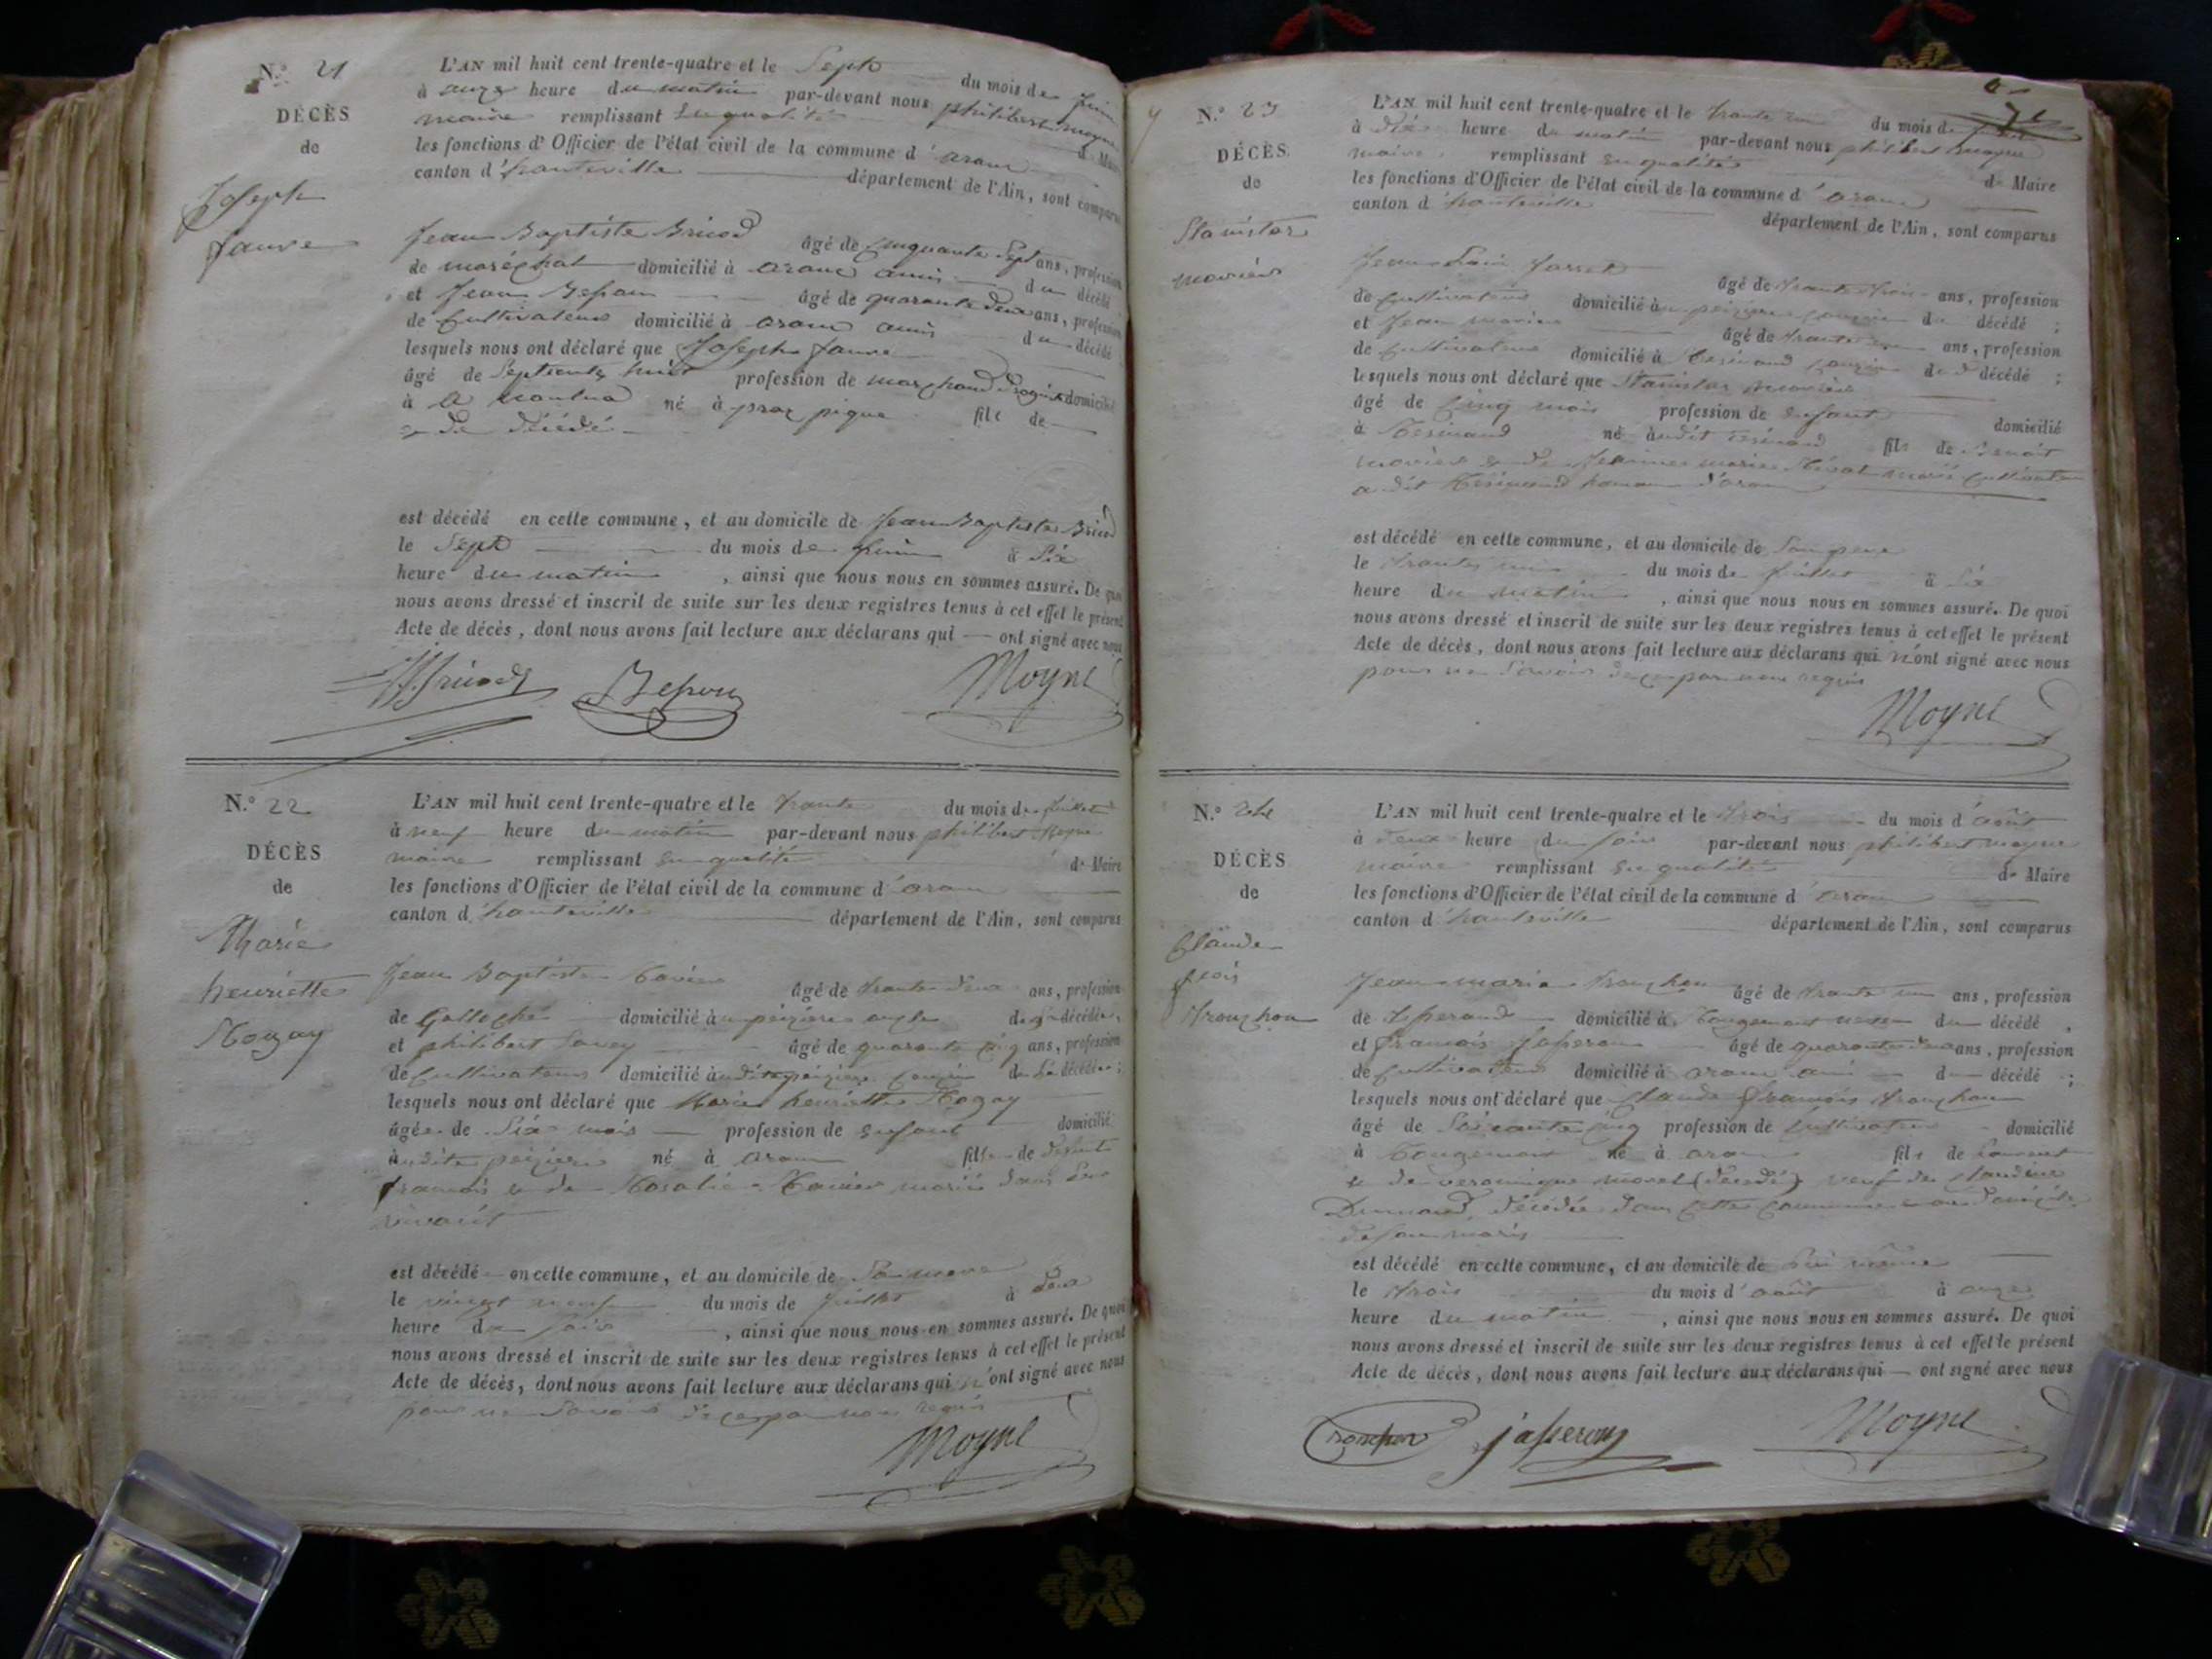 N.° 21
DÉCÈS
de
Joseph
faure
L'AN mil huit cent trente-quatre et le Sept du mois de juin
à onze heure du matin par-devant nous philibert moyne
maire remplissant en qualité de Maire
les fonctions d'Officier de l'état civil de la commune d'aranc
canton d'hauteville département de l'Ain, sont comparus
Jean Baptiste Bricod âgé de Cinquante Sept ans, profession
de maréchal domicilié à aranc amis du décédé
et Jean âgé de quarante deux ans, profession
de Cultivateur domicilié à aranc amis du décédé
lesquels nous ont déclaré que Joseph faure
âgé de Septente huit profession de marchand domicilié
à né à fils de
& de décédé
est décédé en cette commune, et au domicile de Jean Baptiste Bricod
le Sept du mois de juin à Six
heure du matin, ainsi que nous nous en sommes assuré. De quoi
nous avons dressé et inscrit de suite sur les deux registres tenus à cet effet le présent
Acte de décès, dont nous avons fait lecture aux déclarans qui — ont signé avec nous
Moyne
N.° 22
DÉCÈS
de
Marie
henriette
L'AN mil huit cent trente-quatre et le trante du mois de juillet
à neuf heure du matin par-devant nous philibert Moyne
maire remplissant en qualité de Maire
les fonctions d'Officier de l'état civil de la commune d'aranc
canton d'hauteville département de l'Ain, sont comparus
Jean Baptiste âgé de trante deux ans, profession
de domicilié à de la décédée,
et philibert Savey âgé de quarante cinq ans, profession
de Cultivateur domicilié à cousin de la décédée;
lesquels nous ont déclaré que Marie henriette
âgée de Six mois profession de enfant domicilié
à né à Aranc fille de défunt
francois & de Rosalie mariés dans leur
vivant
est décédé en cette commune, et au domicile de Sa mere
le vingt neuf du mois de juillet à deux
heure du soir, ainsi que nous nous en sommes assuré. De quoi
nous avons dressé et inscrit de suite sur les deux registres tenus à cet effet le présent
Acte de décès, dont nous avons fait lecture aux déclarans qui n'ont signé avec nous
pour ne Savoir de ce par nous requis
Moyne
N.° 23
DÉCÈS
de
Stanislas
L'AN mil huit cent trente-quatre et le trante un du mois de
à dix heure du matin par-devant nous philibert moyne
maire remplissant en qualité de Maire
les fonctions d'Officier de l'état civil de la commune d'aranc
canton d'hauteville département de l'Ain, sont comparus
Jean âgé de trante trois ans, profession
de Cultivateur domicilié à cousin du décédé;
et Jean âgé de trante ans, profession
de Cultivateur domicilié à Résinand cousin du décédé;
lesquels nous ont déclaré que Stanislas
âgé de Cinq mois profession de enfant domicilié
à Résinand né audit résinand fils de Benoit
& de Jeanne marie mariés Cultivateur
audit Résinand hameau d'aranc
est décédé en cette commune, et au domicile de Son pere
le trante un du mois de juillet à Six
heure du matin, ainsi que nous nous en sommes assuré. De quoi
nous avons dressé et inscrit de suite sur les deux registres tenus à cet effet le présent
Acte de décès, dont nous avons fait lecture aux déclarans qui n'ont signé avec nous
pour ne Savoir de ce par nous requis
Moyne
N.° 24
DÉCÈS
de
Claude
fcois
tronchon
L'AN mil huit cent trente-quatre et le trois du mois d'août
à deux heure du soir par-devant nous philibert moyne
maire remplissant en qualité de Maire
les fonctions d'Officier de l'état civil de la commune d'aranc
canton d'hauteville département de l'Ain, sont comparus
Jean marie tronchon âgé de trante un ans, profession
de domicilié à Rougemont neveu du décédé,
et francois Jasseron âgé de quarante deux ans, profession
de Cultivateur domicilié à aranc ami du décédé;
lesquels nous ont déclaré que Claude francois tronchon
âgé de Soixante cinq profession de Cultivateur domicilié
à Rougemont né à aranc fils de Laurent
& de veronique morel (décédé) veuf de Claudine
décédée dans cette Commune au domicile
de son maris
est décédé en cette commune, et au domicile de lui même
le trois du mois d'août à onze
heure du matin, ainsi que nous nous en sommes assuré. De quoi
nous avons dressé et inscrit de suite sur les deux registres tenus à cet effet le présent
Acte de décès, dont nous avons fait lecture aux déclarans qui — ont signé avec nous
tronchon jasseron Moyne